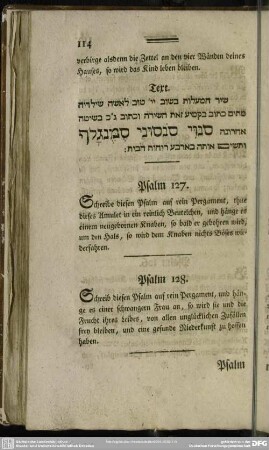 114
verbirge alsdenn die Zettel an den vier Wänden deines
Hauses, so wird das Kind leben bleiben.
Text.
שיר המעלות בשוב יי׳ טוב לאשה שילדיה
מתים כתוב בקמיע זאת השירה וכתוב ג״כ בשיטה
אחרונה סנוי סנסוני סמנגלף
אותה בארבע רוחות הבית:
Psalm 127.
Schreibe diesen Psalm auf rein Pergament, thue
dieses Amulet in ein reinlich Beutelchen, und hänge es
einem neugebornen Knaben, so bald er gebohren wird,
um den Hals, so wird dem Knaben nichts Böses wie-
derfahren.
Psalm 128.
Schreib diesen Psalm auf rein Pergament, und hän-
ge es einer schwangern Frau an, so wird sie und die
Frucht ihres Leibes, von allen unglücklichen Zufällen
frey bleiben, und eine gesunde Niederkunft zu hoffen
haben.
Psalm
DFG